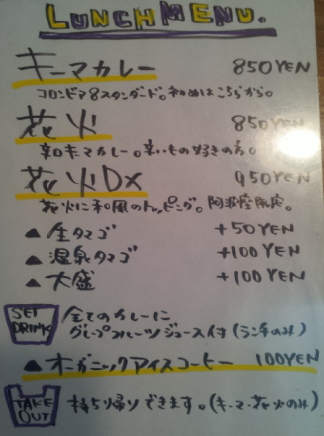 LUNCH MENU.
キーマカレー 850YEN
コロンビア8スタンダード。初めはこちらから。
花火 850YEN
辛口キーマカレー。辛いもの好きの方。
花火DX 950YEN
花火に和風のトッピング。阿波座限定。
▲生タマゴ +50YEN
▲温泉タマゴ +100YEN
▲大盛 +100YEN
SET DRINK 全てのカレーに
グレープフルーツジュース付(ランチのみ)
▲オーガニックアイスコーヒー 100YEN
TAKE OUT 持ち帰りできます。(キーマ・花火のみ)